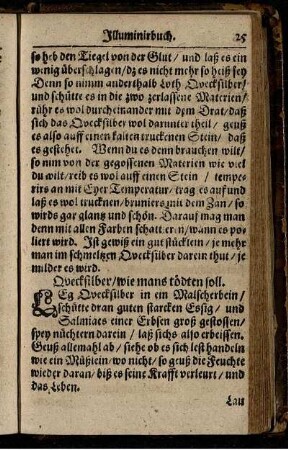 Illuminirbuch. 25
so heb den Tiegel von der Glut / und laß es ein
wenig überschlagen / dz es nicht mehr so heiß sey
Denn so nimm anderthalb Loth Qvecksilber /
und schütte es in die zwo zerlassene Materien /
rühr es wol durcheinander mit dem Drat / daß
sich das Qvecksilber wol darmit theil / geuß
es also auff einen kalten truckenen Stein / daß
es gestehet. Wenn du es denn brauchen wilt /
so nim von der gegossenen Materien wie viel
du wilt / reib es wol auff einen Stein / tempe-
rirs an mit Eyer Temperatur / trag es auf und
laß es wol trucknen / bruniers mit dem Zan / so
wirds gar glantz und schön. Darauf mag man
denn mit allen Farben schattieren / wann es po-
liert wird. Ist gewiß ein gut stücklein / je mehr
man im schmeltzen Qvecksilber darein thut / je
milder es wird.
Qvecksilber / wie mans tödten soll.
LEg Qvecksilber in ein Malscherbein /
schütte dran guten starcken Essig / und
Salmiacs einer Erbsen groß gestossen /
spey nüchtern darein / laß sichs also erbeissen.
Geuß allemahl ab / siehe ob es sich lest handeln
wie ein Müßlein / wo nicht / so geuß die Feuchte
wieder daran / biß es seine Krafft verleurt / und
das Leben.
Lau